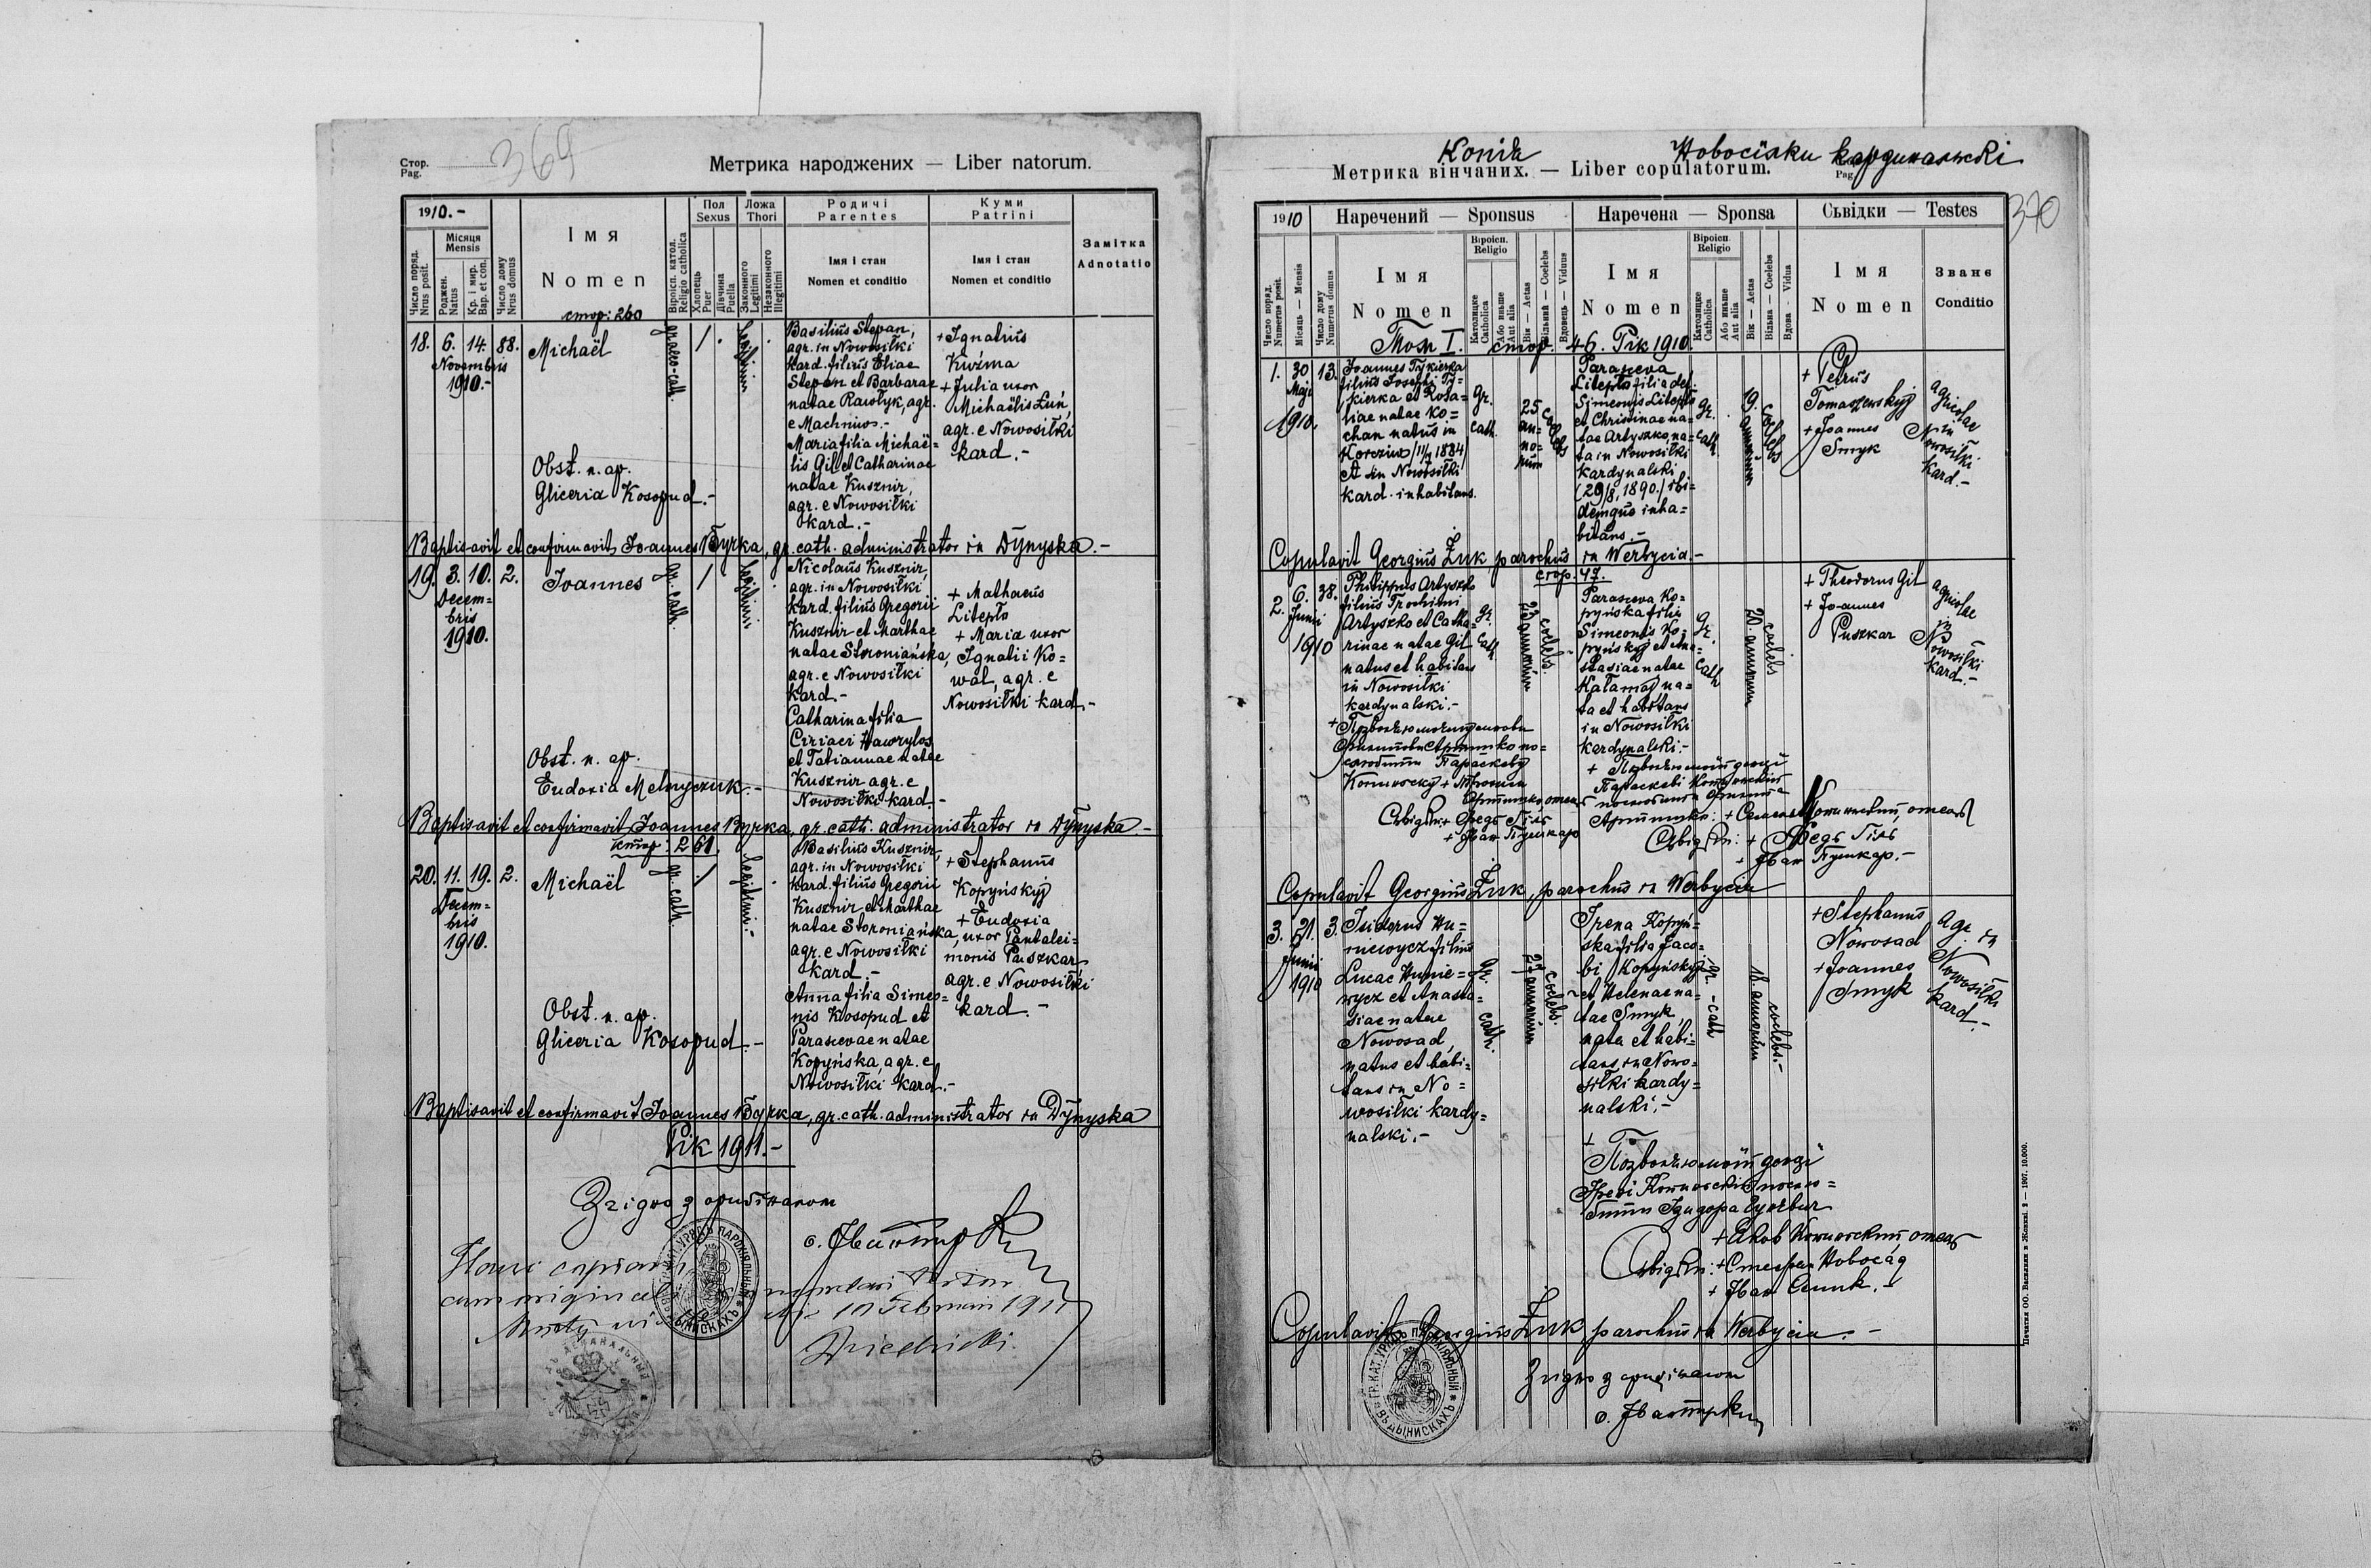 Стор.
Pag.
369
Метрика народжених — Liber natorum.
1910.-
Місяця
Mensis
Число поряд.
Nrus posit.
Роджен.
Natus
Кр. і мир.
Bap. et con.
Число дому
Nrus domus
Імя
Nomen
стор: 260
Віроісп. катол.
Religio catholica
Пол
Sexus
Хлопець
Puer
Дївчина
Puella
Ложа
Thori
Законного
Legitimi
Незаконного
Illegitimi
Родичі
Parentes
Імя і стан
Nomen et conditio
Куми
Patrini
Імя і стан
Nomen et conditio
Замітка
Adnotatio
18. 6. 14. 88.
Novembris
1910.-
Michaël
Obst. n. ap.
Gliceria Kosopud.-
graeco-cath.
1
legitimi
Basilius Stepan,
agr. in Nowosiłki
kard. filius Eliae
Stepan et Barbarae
natae Rawłyk, agr.
e Machnio.-
Maria filia Michaë=
lis Gil et Catharinae
natae Kusznir,
agr. e Nowosiłki
kard.-
+ Ignatius
Kuźma
+ Julia uxor
Michaëlis Łuń,
agr. e Nowosiłki
kard.-
Baptisavit et confirmavit Joannes Byrka, gr. cath. administrator in Dynyska.-
19. 3. 10. 2.
Decem=
bris
1910.
Joannes
Obst. n. ap.
Eudoxia Melnyczuk.-
gr. cath.
1
legitimi
Nicolaus Kusznir,
agr. in Nowosiłki
kard. filius Gregorii
Kusznir et Marthae
natae Storoniańska,
agr. e Nowosiłki
kard.-
Catharina filia
Ciriaci Hawrylos
et Tatiannae natae
Kusznir agr. e
Nowosiłki kard.-
+ Mathaeus
Litepło
+ Maria uxor
Ignatii Ko=
wal, agr. e
Nowosiłki kard.-
Baptisavit et confirmavit Joannes Byrka, gr. cath. administrator in Dynyska-
стор. 261.
20. 11. 19. 2.
Decem=
bris
1910.
Michaël
Obst. n. ap.
Gliceria Kosopud.-
gr. cath.
1
legitimi.-
Basilius Kusznir,
agr. in Nowosiłki
kard. filius Gregorii
Kusznir et Marthae
natae Storoniańska,
agr. e Nowosiłki
kard.-
Anna filia Simeo=
nis Kosopud et
Parascevae natae
Kopyńska, agr. e
Nowosiłki kard.-
+ Stephanus
Kopyńskyj
+ Eudoxia
uxor Pantalei=
monis Puszkar
agr. e Nowosiłki
kard.-
Baptisavit et confirmavit Joannes Byrka, gr. cath. administrator in Dynyska
Рік 1911.-
Згідно з оригіналом
cum originali
Конїв
Новосілки кардинальскі
Метрика вінчаних. — Liber copulatorum.
Pag.
370
1910
Наречений — Sponsus
Наречена — Sponsa
Сьвідки — Testes
Число поряд.
Numerus posit.
Місяць — Mensis
Число дому
Numerus domus
Імя
Nomen
Віроісп.
Religio
Католицке
Catholica
Або иньше
Aut alia
Вік — Aetas
Вільний — Coelebs
Вдовець — Viduus
Імя
Nomen
Віроісп.
Religio
Католицке
Catholica
Або иньше
Aut alia
Вік — Aetas
Вільна — Coelebs
Вдова - Vidua
Імя
Nomen
Званє
Conditio
Том I. стор. 46. Рік 1910.
1. 30 13.
Maji
1910.
Joannes Tykierka
filius Josephi Ty=
kierka et Rosa=
liae natae Ko=
chan natus in
Korczów /11/7 1884/
et in Nowosiłki
kard. inhabitans.
Gr.
cath.
25
an=
no=
rum
coelebs
Parasceva
Litepło filia def.
Simeonis Litepło
et Christinae na=
tae Artyszko, na=
ta in Nowosiłki
kardynalski
(29/8, 1890./ ibi=
demque inha=
bitans.-
Gr.
cath
19.
annorum
coelebs
+ Petrus
Tomaszewskyj
+ Joannes
Smyk
agricolae
in
Nowosiłki
kard.-
Copulavit Georgius Żuk parochus in Werbycia.-
стор. 47.
2. 6. 38.
Junii
1910
Philippus Artyszko
filius Trochimi
Artyszko et Catha=
rinae natae Gil
natus et habitans
in Nowosiłki
kardynalski.-
Gr.
Cath
23 annorum
coelebs.
Parasceva Ko=
pyńska filia
Simeonis Ko=
pyńskyj et Ana=
stasiae natae
Kałamaj na=
ta et habitans
in Nowosiłki
kardynalski.-
Gr.
Cath
20. annorum
coelebs
+ Theodorus Gil
+ Joannes
Puszkar
agricolae
in
Nowosiłki
kard.-
Сьвідки: + Федь Гіль
+ Іван Пушкар
Сьвідки: + Федь Гіль
+ Іван Пушкар.-
Copulavit Georgius Żuk, parochus in Werbycia
3. 21. 3.
Junii
1910
Isidorus Hu=
niewycz filius
Lucae Hunie=
wycz et Anasta=
siae natae
Nowosad,
natus et habi=
tans in No=
wosiłki kardy=
nalski.-
Gr.
cath.
27 annorum
coelebs.
Irena Kopyń=
ska filia Jaco=
bi Kopyńskyj
et Helenae na=
tae Smyk,
nata et habi=
tans in Nowo=
siłki kardy=
nalski.-
gr.-cath
18. annorum
coelebs.-
+ Stephanus
Nowosad
+ Joannes
Smyk
agr. in
Nowosiłki
kard.-
+
Позволяю моїй доцї
+ Яков Копиньский, отець
Сьвідки: + Стефан Новосад
+ Іван Смик.-
Copulavit Georgius Żuk, parochus in Werbycia.-
Згідно з оригіналом
Печатня ОО. Василиян в Жовкві. 2 — 1907. 10.000.